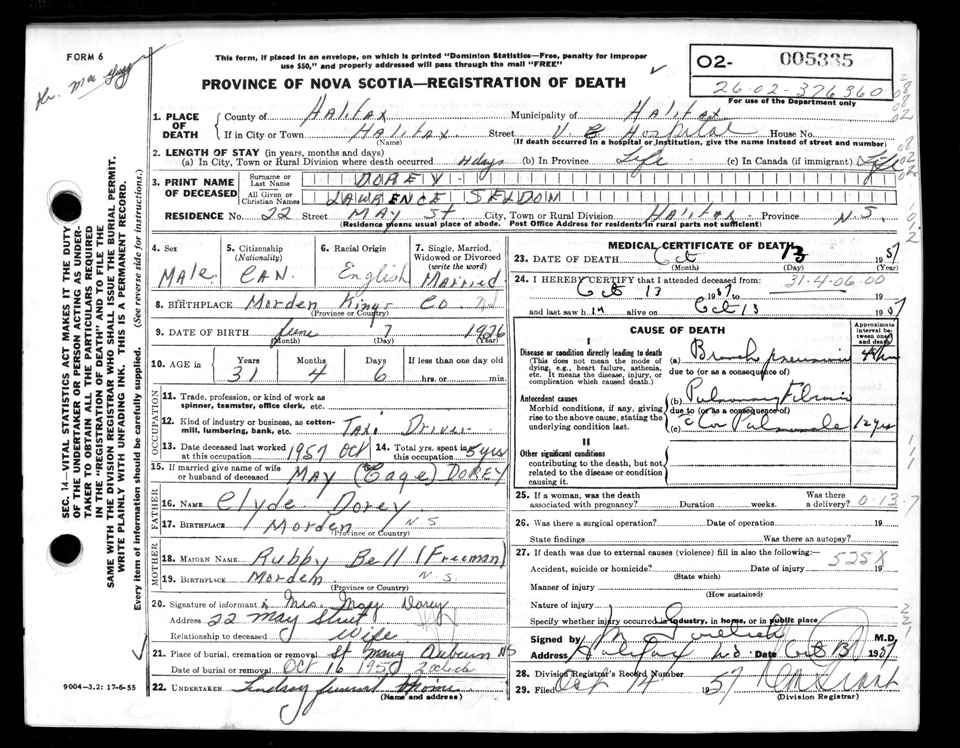 FORM 6
This form, if placed in an envelope, on which is printed "Dominion Statistics—Free, penalty for improper
use $50," and properly addressed will pass through the mail "FREE"
02- 005335
26-02-376360
For use of the Department only
PROVINCE OF NOVA SCOTIA—REGISTRATION OF DEATH
1. PLACE OF DEATH
County of Halifax Municipality of Halifax
If in City or Town Halifax Street V G Hospital House No.
(Name) (If death occurred in a hospital or institution, give the name instead of street and number)
2. LENGTH OF STAY (in years, months and days)
(a) In City, Town or Rural Division where death occurred 4 days (b) In Province Life (c) In Canada (if immigrant) Life
3. PRINT NAME OF DECEASED
Surname or Last Name DOREY
All Given or Christian Names LAWRENCE SELDON
RESIDENCE No. 22 Street MAY St City, Town or Rural Division Halifax Province N.S.
(Residence means usual place of abode. Post Office Address for residents in rural parts not sufficient)
4. Sex Male
5. Citizenship (Nationality) CAN.
6. Racial Origin English
7. Single, Married, Widowed or Divorced (write the word) Married
8. BIRTHPLACE Morden Kings Co
(Province or Country)
9. DATE OF BIRTH June 7 1926
(Month) (Day) (Year)
10. AGE in Years 31 Months 4 Days 6 If less than one day old
hrs. or min.
OCCUPATION
11. Trade, profession, or kind of work as
spinner, teamster, office clerk, etc.
12. Kind of industry or business, as cotton-
mill, lumbering, bank, etc. Taxi Driver
13. Date deceased last worked at this occupation 1957 Oct
14. Total yrs. spent in this occupation 5 yrs
15. If married give name of wife
or husband of deceased MAY (Eage) DOREY
FATHER
16. NAME Clyde Dorey
17. BIRTHPLACE Morden N.S
(Province or Country)
MOTHER
18. MAIDEN NAME Rubby Bell (Freeman)
19. BIRTHPLACE Morden N.S.
(Province or Country)
20. Signature of informant x Mrs. May Dorey
Address 22 May Street
Relationship to deceased Wife
21. Place of burial, cremation or removal St Mary Auburn NS
Date of burial or removal Oct 16 1950 2 oclock
22. UNDERTAKER Lindsay funeral Home
(Name and address)
9004—3.2: 17-6-55
MEDICAL CERTIFICATE OF DEATH
23. DATE OF DEATH Oct 13 1957
(Month) (Day) (Year)
24. I HEREBY CERTIFY that I attended deceased from: 31-4-06-00
Oct 13 1957 to 19
and last saw h im alive on Oct 13 1957
CAUSE OF DEATH
Approximate interval between onset and death
I
Disease or condition directly leading to death
(This does not mean the mode of dying, e.g., heart failure, asthenia, etc. It means the disease, injury, or complication which caused death.)
(a) Broncho pneumonia
due to (or as a consequence of)
Antecedent causes
Morbid conditions, if any, giving rise to the above cause, stating the underlying condition last.
(b) Pulmonary Fibrosis
due to (or as a consequence of)
(c) Cor Pulmonale 12 yrs
II
Other significant conditions
contributing to the death, but not related to the disease or condition causing it.
25. If a woman, was the death associated with pregnancy? Duration weeks. Was there a delivery? 0-13-7
26. Was there a surgical operation? Date of operation 19
State findings Was there an autopsy?
27. If death was due to external causes (violence) fill in also the following:— 525X
Accident, suicide or homicide? Date of injury 19
(State which)
Manner of injury
(How sustained)
Nature of injury
Specify whether injury occurred in industry, in home, or in public place
Signed by M.D.
Address Halifax N.S Date Oct 13 1957
28. Division Registrar's Record Number
29. Filed Oct 14 1957
(Division Registrar)
SEC. 14—VITAL STATISTICS ACT MAKES IT THE DUTY
OF THE UNDERTAKER OR PERSON ACTING AS UNDER-
TAKER TO OBTAIN ALL THE PARTICULARS REQUIRED
IN THE "REGISTRATION OF DEATH" AND TO FILE THE
SAME WITH THE DIVISION REGISTRAR WHO SHALL ISSUE THE BURIAL PERMIT.
WRITE PLAINLY WITH UNFADING INK. THIS IS A PERMANENT RECORD.
Every item of information should be carefully supplied. (See reverse side for instructions.)